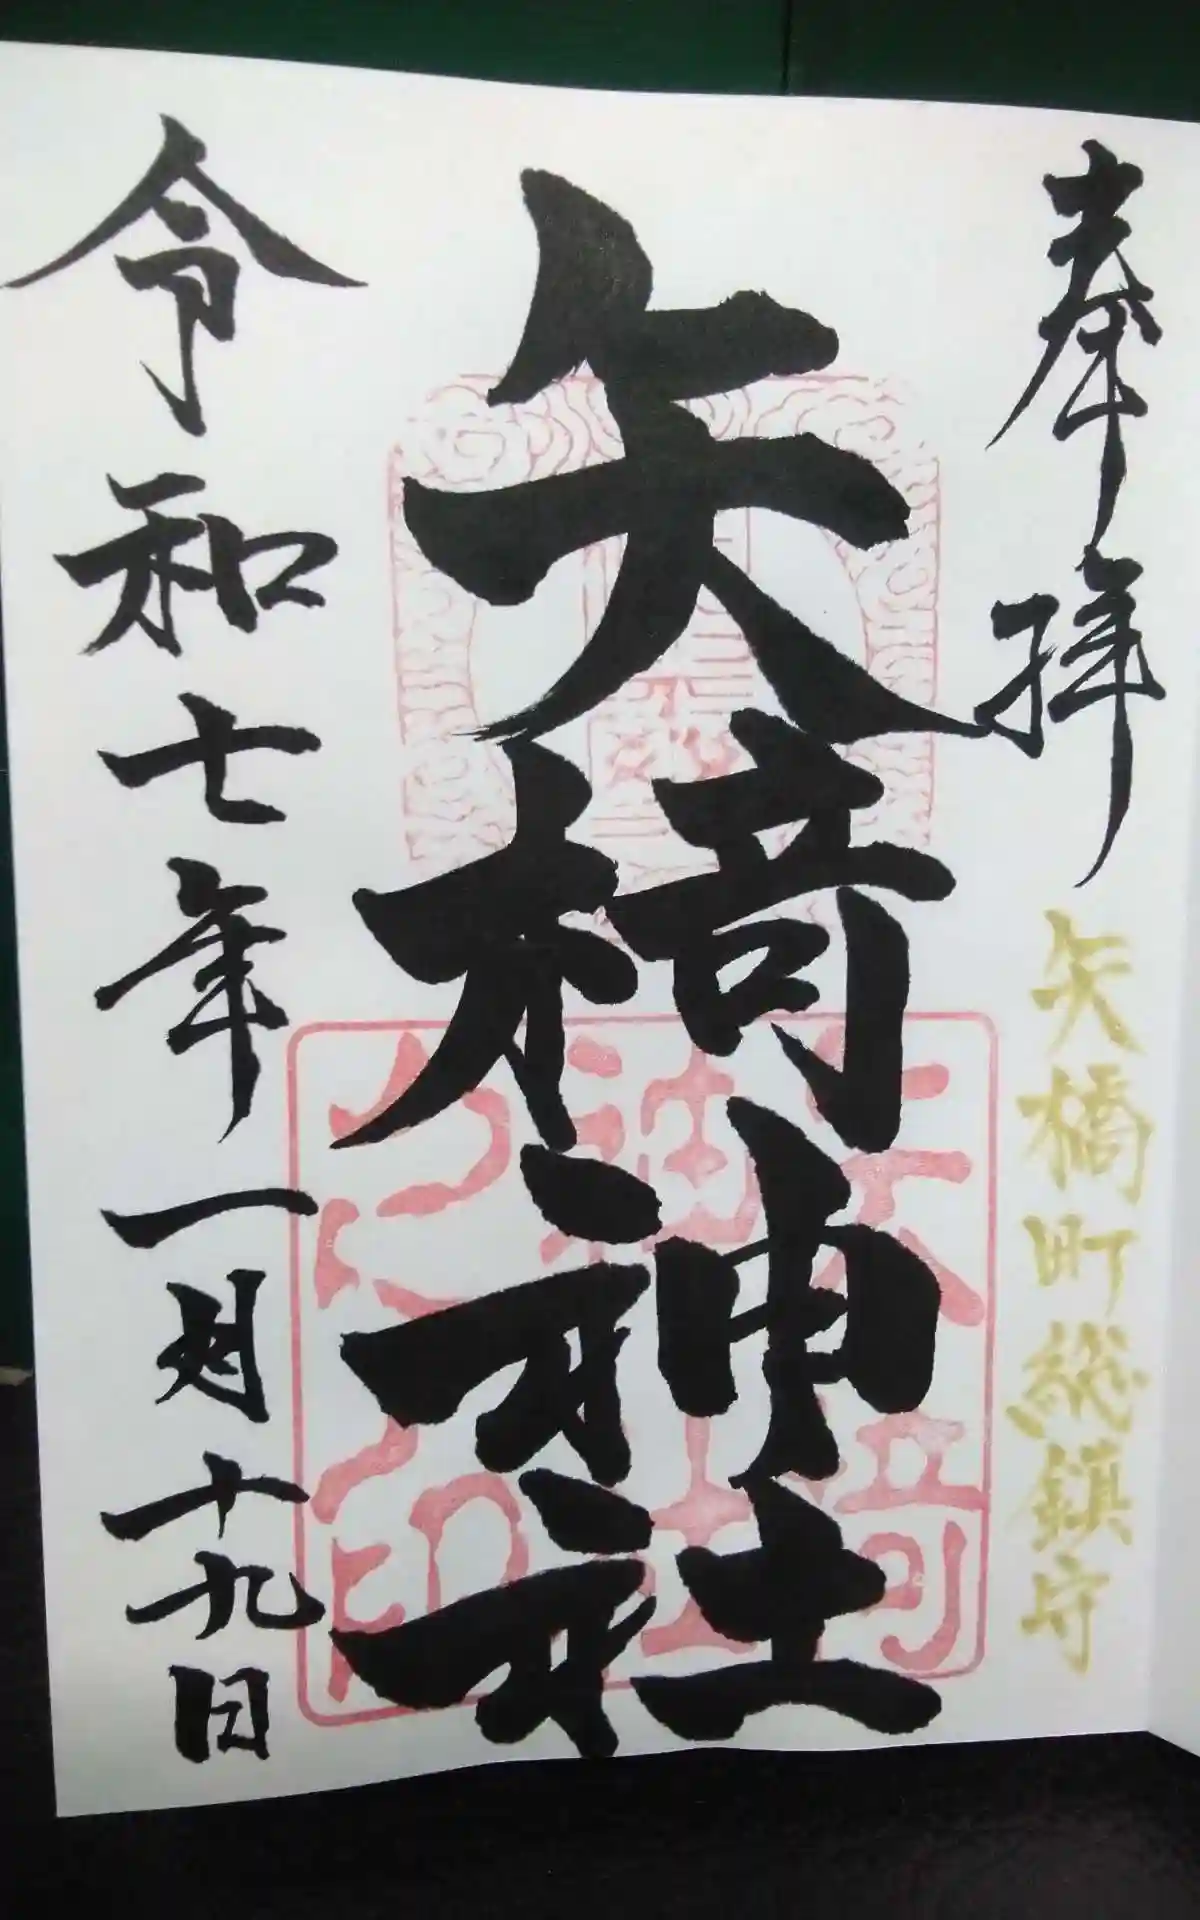 奉拝
矢橋町総鎮守
矢椅神社
令和七年一月十九日
矢椅
神社